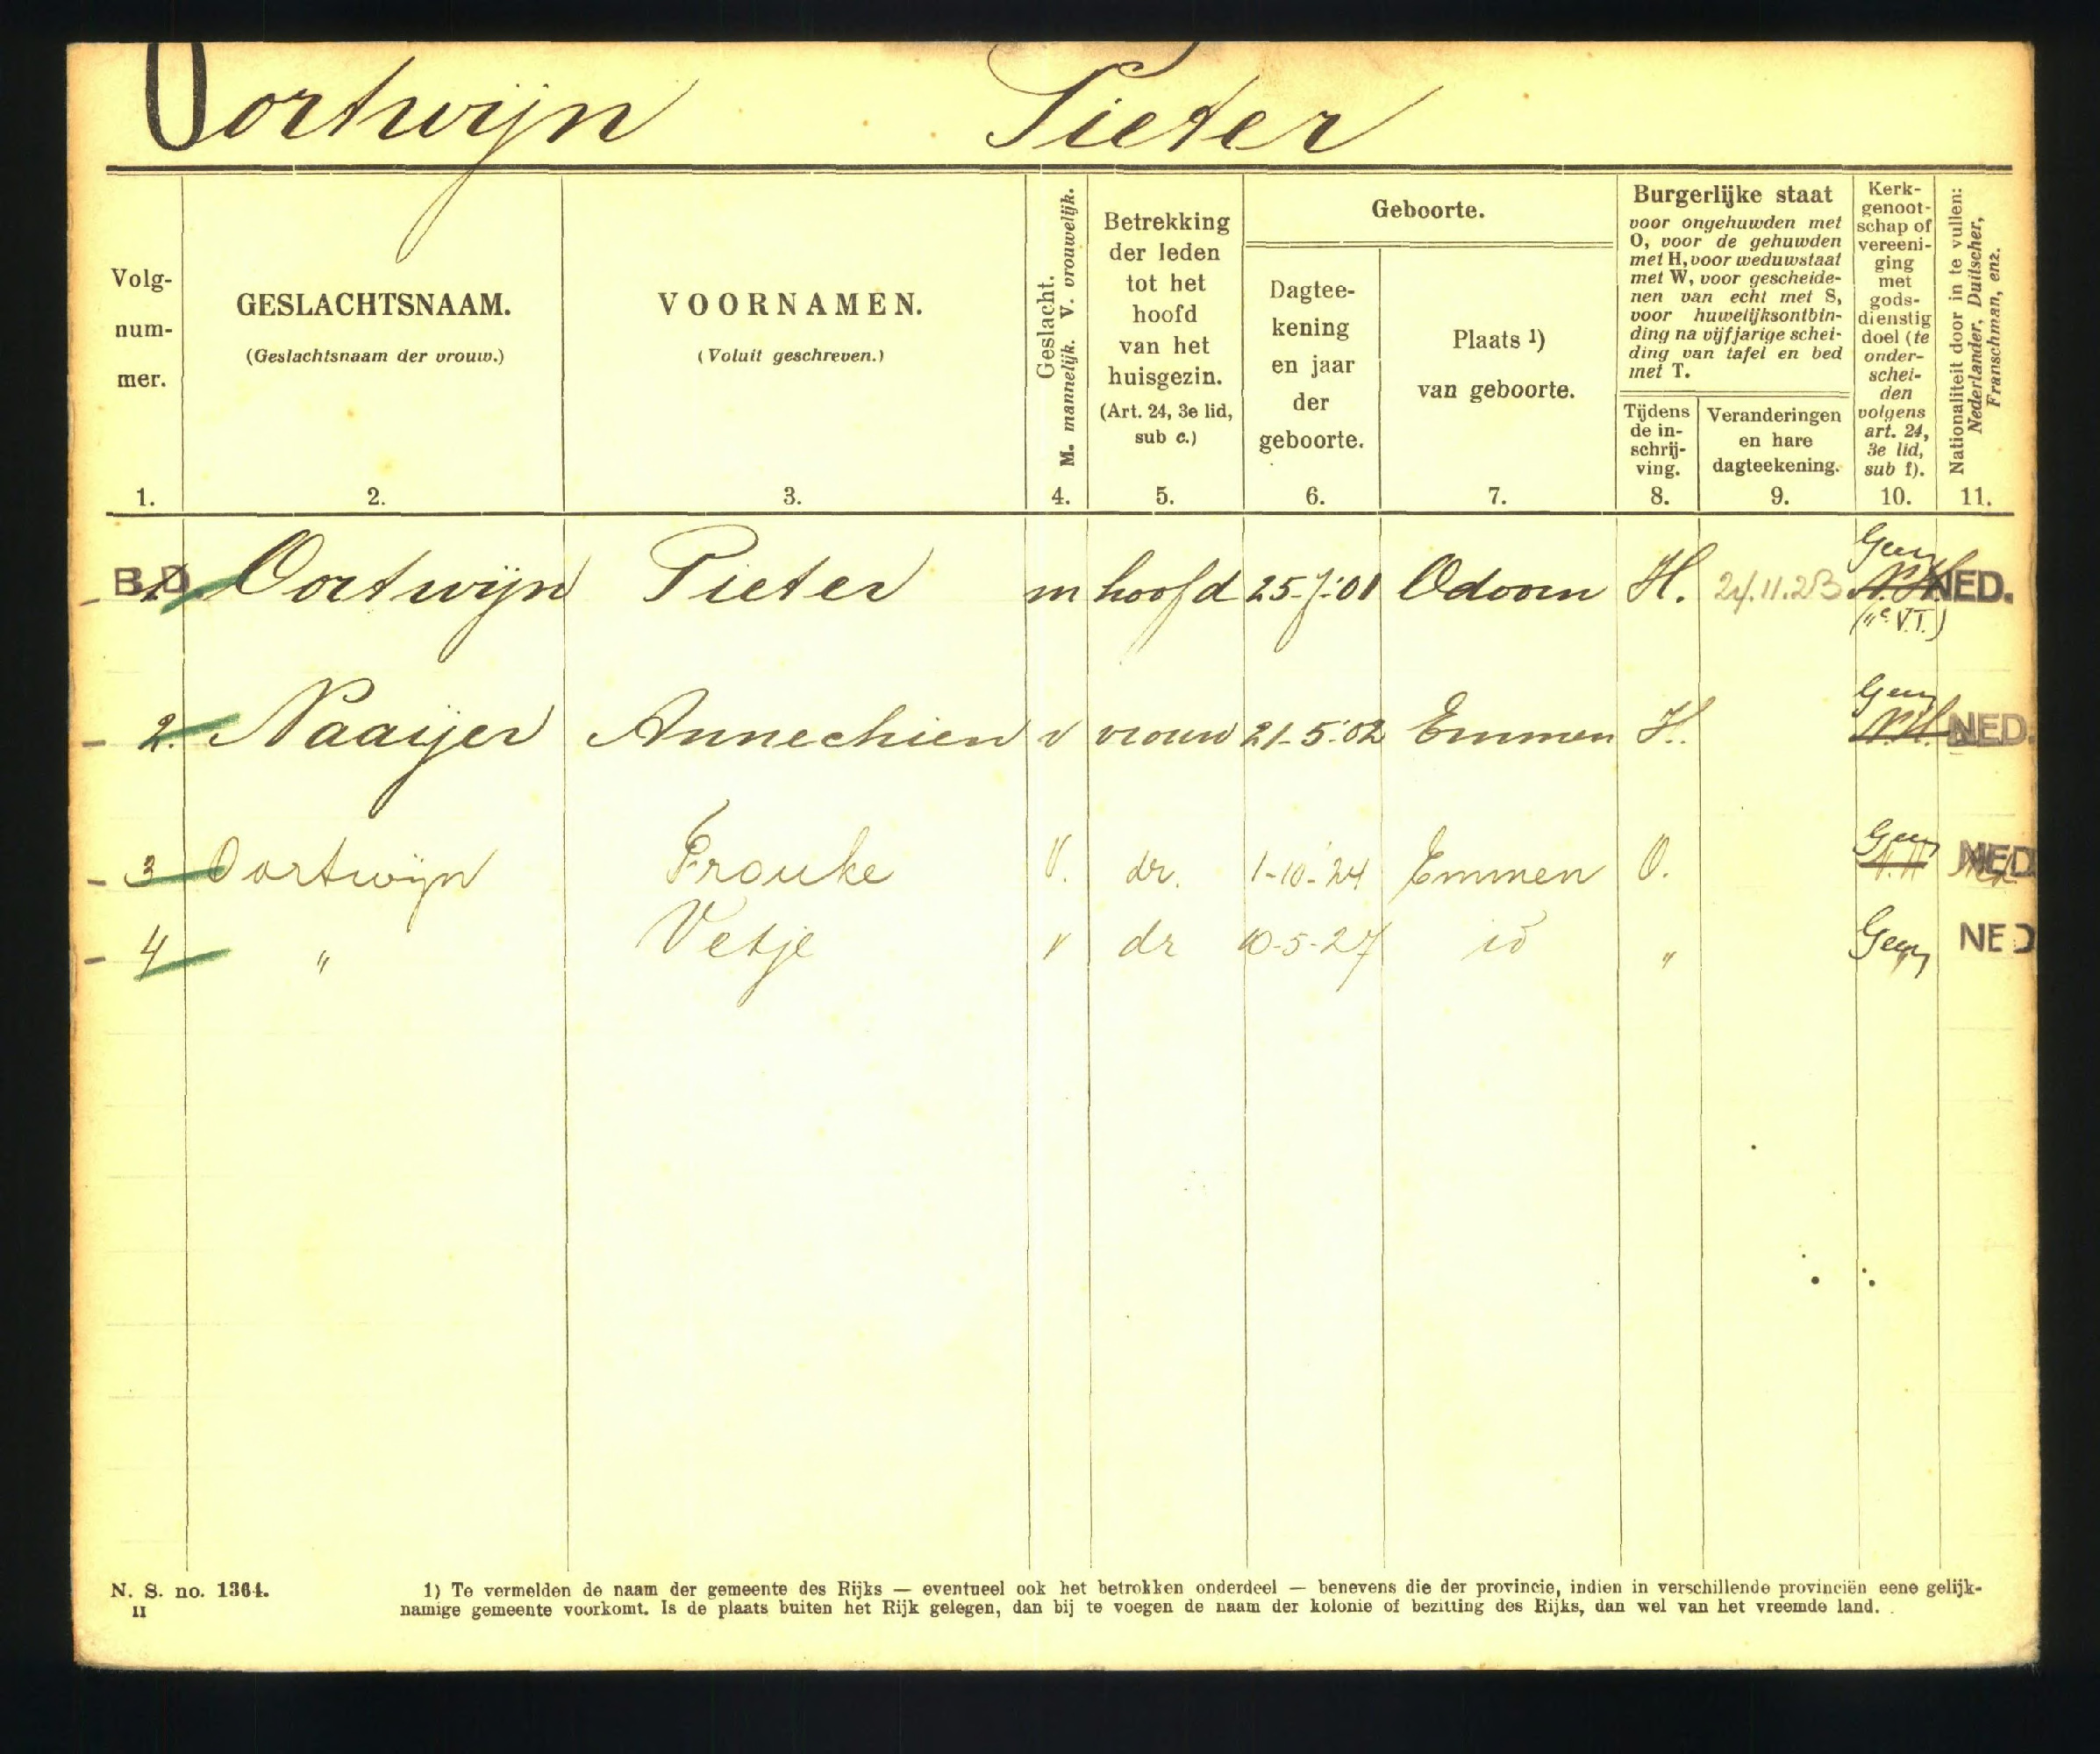 Oortwijn Pieter
Volg-
num-
mer.
1.
GESLACHTSNAAM.
(Geslachtsnaam der vrouw.)
2.
VOORNAMEN.
(Voluit geschreven.)
3.
Geslacht.
M. mannelijk. V. vrouwelijk.
4.
Betrekking
der leden
tot het
hoofd
van het
huisgezin.
(Art. 24, 3e lid,
sub c.)
5.
Geboorte.
Dagtee-
kening
en jaar
der
geboorte.
6.
Plaats 1)
van geboorte.
7.
Burgerlijke staat
voor ongehuwden met
O, voor de gehuwden
met H, voor weduwstaat
met W, voor gescheide-
nen van echt met S,
voor huwelijksontbin-
ding na vijfjarige schei-
ding van tafel en bed
met T.
Tijdens
de in-
schrij-
ving.
8.
Veranderingen
en hare
dagteekening.
9.
Kerk-
genoot-
schap of
vereeni-
ging
met
gods-
dienstig
doel (te
onder-
schei-
den
volgens
art. 24,
3e lid,
sub f).
10.
Nationaliteit door in te vullen:
Nederlander, Duitscher,
Franschman, enz.
11.
B.D. 1. Oortwijn Pieter m hoofd 25-7-'01 Odoorn H. 24.11.23 Geen N.H. NED.
2. Naaijer Annechien v vrouw 21-5-'02 Emmen H. Geen N.H. NED.
3 Oortwijn Frouke V. dr. 1-10-'24 Emmen O. Geen N.H NED.
4 " Vetje v dr 10-5-27 id " Geen NED
N. S. no. 1364.
II
1) Te vermelden de naam der gemeente des Rijks — eventueel ook het betrokken onderdeel — benevens die der provincie, indien in verschillende provinciën eene gelijk-
namige gemeente voorkomt. Is de plaats buiten het Rijk gelegen, dan bij te voegen de naam der kolonie of bezitting des Rijks, dan wel van het vreemde land.